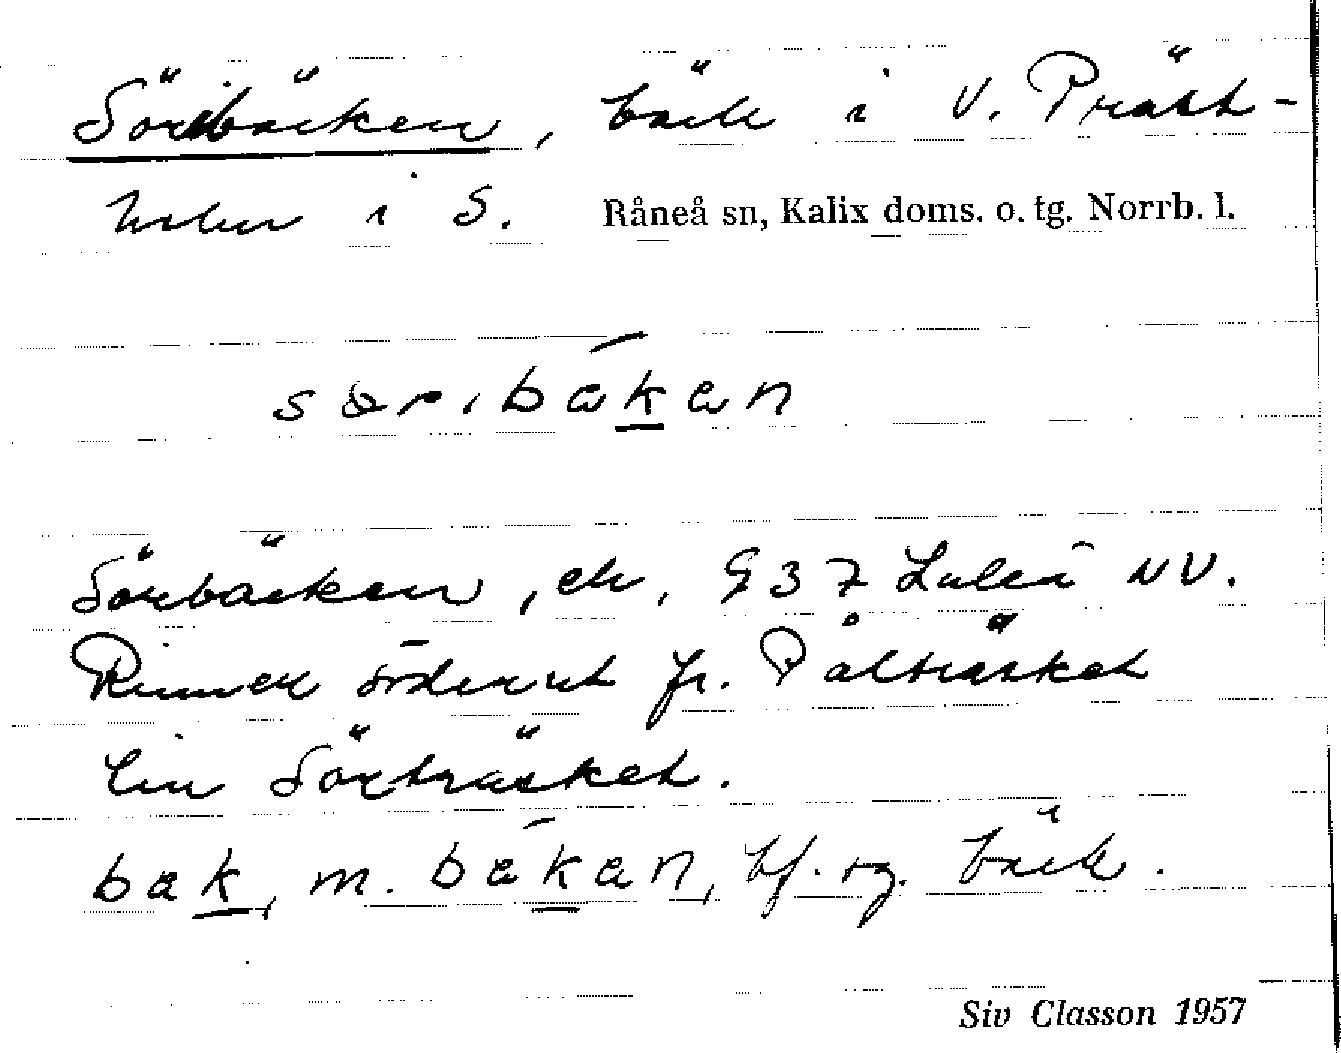 Söribäcken, bäck i V. Präst-
holm i S. Råneå sn, Kalix doms. o. tg. Norrb. l.
særibækan
Sörbäcken, ek, 937 Luleå NV.
Rinner söderut fr. Pålträsket
till Sörträsket.
bæk, m. bækan, bf. sg. bäck.
Siv Classon 1957